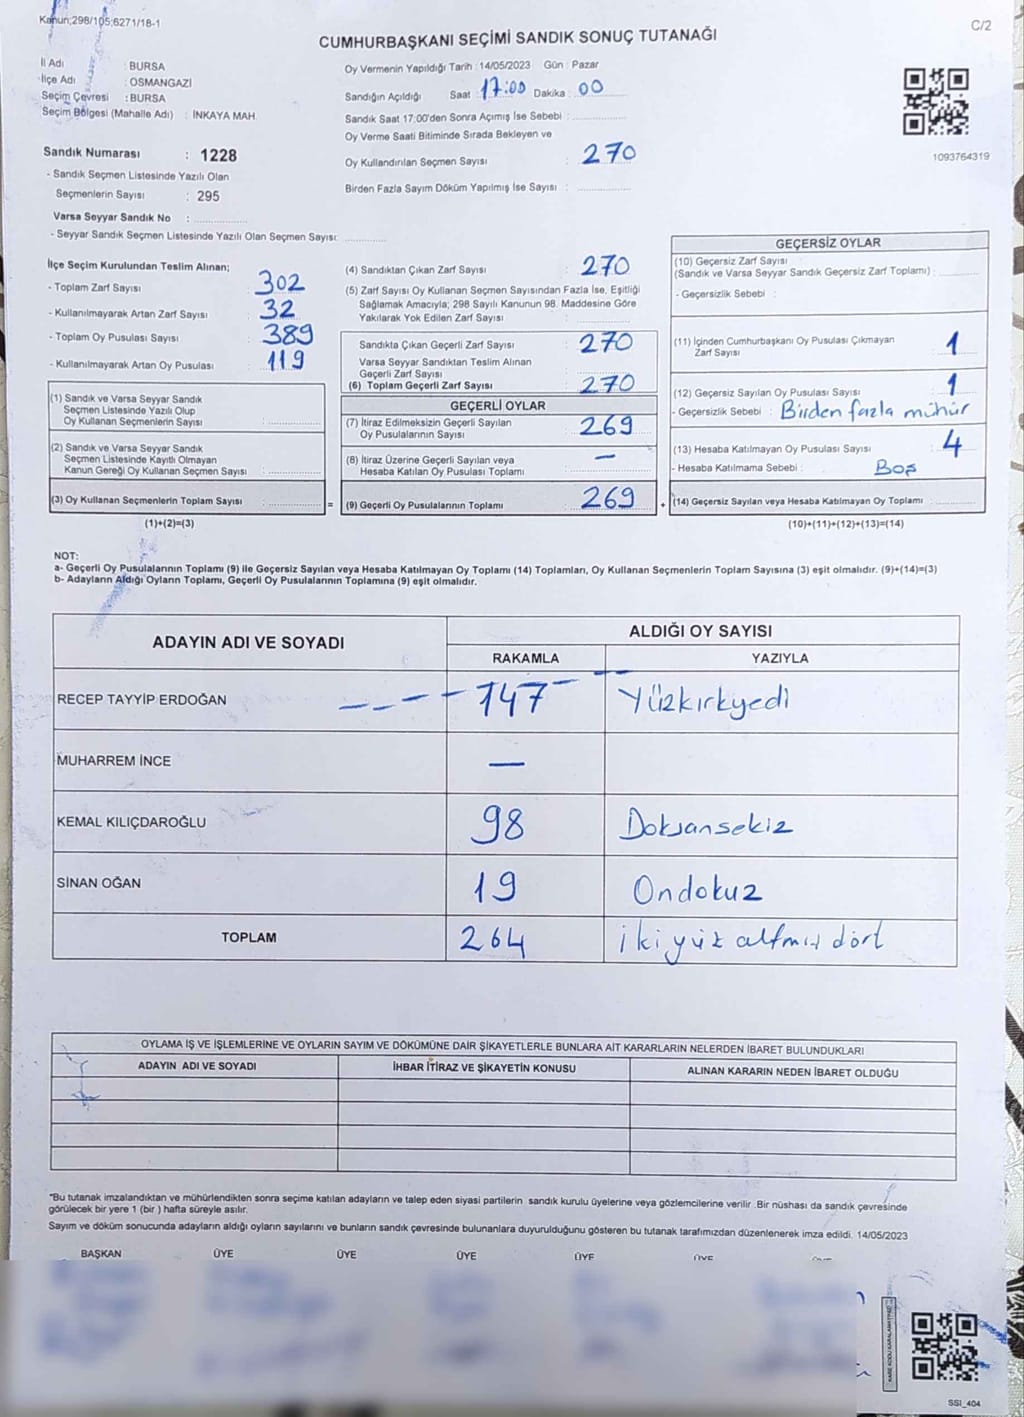 Kanun;298/105;6271/18-1
C/2
CUMHURBAŞKANI SEÇİMİ SANDIK SONUÇ TUTANAĞI
İl Adı : BURSA
İlçe Adı : OSMANGAZİ
Seçim Çevresi : BURSA
Seçim Bölgesi (Mahalle Adı) : İNKAYA MAH.
Sandık Numarası : 1228
- Sandık Seçmen Listesinde Yazılı Olan
Seçmenlerin Sayısı : 295
Varsa Seyyar Sandık No :
- Seyyar Sandık Seçmen Listesinde Yazılı Olan Seçmen Sayısı:
Oy Vermenin Yapıldığı Tarih : 14/05/2023 Gün : Pazar
Sandığın Açıldığı Saat 17:00 Dakika : 00
Sandık Saat 17:00'den Sonra Açımış İse Sebebi :
Oy Verme Saati Bitiminde Sırada Bekleyen ve
Oy Kullandırılan Seçmen Sayısı : 270
Birden Fazla Sayım Döküm Yapılmış İse Sayısı :
1093764319
İlçe Seçim Kurulundan Teslim Alınan;
- Toplam Zarf Sayısı : 302
- Kullanılmayarak Artan Zarf Sayısı : 32
- Toplam Oy Pusulası Sayısı : 389
- Kullanılmayarak Artan Oy Pusulası : 119
(1) Sandık ve Varsa Seyyar Sandık
Seçmen Listesinde Yazılı Olup
Oy Kullanan Seçmenlerin Sayısı :
(2) Sandık ve Varsa Seyyar Sandık
Seçmen Listesinde Kayıtlı Olmayan
Kanun Gereği Oy Kullanan Seçmen Sayısı :
(3) Oy Kullanan Seçmenlerin Toplam Sayısı :
(1)+(2)=(3)
=
(4) Sandıktan Çıkan Zarf Sayısı : 270
(5) Zarf Sayısı Oy Kullanan Seçmen Sayısından Fazla İse, Eşitliği
Sağlamak Amacıyla; 298 Sayılı Kanunun 98. Maddesine Göre
Yakılarak Yok Edilen Zarf Sayısı :
Sandıkta Çıkan Geçerli Zarf Sayısı : 270
Varsa Seyyar Sandıktan Teslim Alınan
Geçerli Zarf Sayısı :
(6) Toplam Geçerli Zarf Sayısı : 270
GEÇERLİ OYLAR
(7) İtiraz Edilmeksizin Geçerli Sayılan
Oy Pusulalarının Sayısı : 269
(8) İtiraz Üzerine Geçerli Sayılan veya
Hesaba Katılan Oy Pusulası Toplamı : —
(9) Geçerli Oy Pusulalarının Toplamı : 269
+
GEÇERSİZ OYLAR
(10) Geçersiz Zarf Sayısı
(Sandık ve Varsa Seyyar Sandık Geçersiz Zarf Toplamı) :
- Geçersizlik Sebebi :
(11) İçinden Cumhurbaşkanı Oy Pusulası Çıkmayan
Zarf Sayısı : 1
(12) Geçersiz Sayılan Oy Pusulası Sayısı : 1
- Geçersizlik Sebebi : Birden fazla mühür
(13) Hesaba Katılmayan Oy Pusulası Sayısı : 4
- Hesaba Katılmama Sebebi : Boş
(14) Geçersiz Sayılan veya Hesaba Katılmayan Oy Toplamı :
(10)+(11)+(12)+(13)=(14)
NOT:
a- Geçerli Oy Pusulalarının Toplamı (9) ile Geçersiz Sayılan veya Hesaba Katılmayan Oy Toplamı (14) Toplamları, Oy Kullanan Seçmenlerin Toplam Sayısına (3) eşit olmalıdır. (9)+(14)=(3)
b- Adayların Aldığı Oyların Toplamı, Geçerli Oy Pusulalarının Toplamına (9) eşit olmalıdır.
ADAYIN ADI VE SOYADI
ALDIĞI OY SAYISI
RAKAMLA YAZIYLA
RECEP TAYYİP ERDOĞAN 147 Yüzkırkyedi
MUHARREM İNCE —
KEMAL KILIÇDAROĞLU 98 Doksansekiz
SİNAN OĞAN 19 Ondokuz
TOPLAM 264 iki yüz altmış dört
OYLAMA İŞ VE İŞLEMLERİNE VE OYLARIN SAYIM VE DÖKÜMÜNE DAİR ŞİKAYETLERLE BUNLARA AİT KARARLARIN NELERDEN İBARET BULUNDUKLARI
ADAYIN ADI VE SOYADI İHBAR İTİRAZ VE ŞİKAYETİN KONUSU ALINAN KARARIN NEDEN İBARET OLDUĞU
"Bu tutanak imzalandıktan ve mühürlendikten sonra seçime katılan adayların ve talep eden siyasi partilerin sandık kurulu üyelerine veya gözlemcilerine verilir. Bir nüshası da sandık çevresinde
görülecek bir yere 1 (bir ) hafta süreyle asılır.
Sayım ve döküm sonucunda adayların aldığı oyların sayılarını ve bunların sandık çevresinde bulunanlara duyurulduğunu gösteren bu tutanak tarafımızdan düzenlenerek imza edildi. 14/05/2023
BAŞKAN ÜYE ÜYE ÜYE ÜYE ÜYE
SSI_404